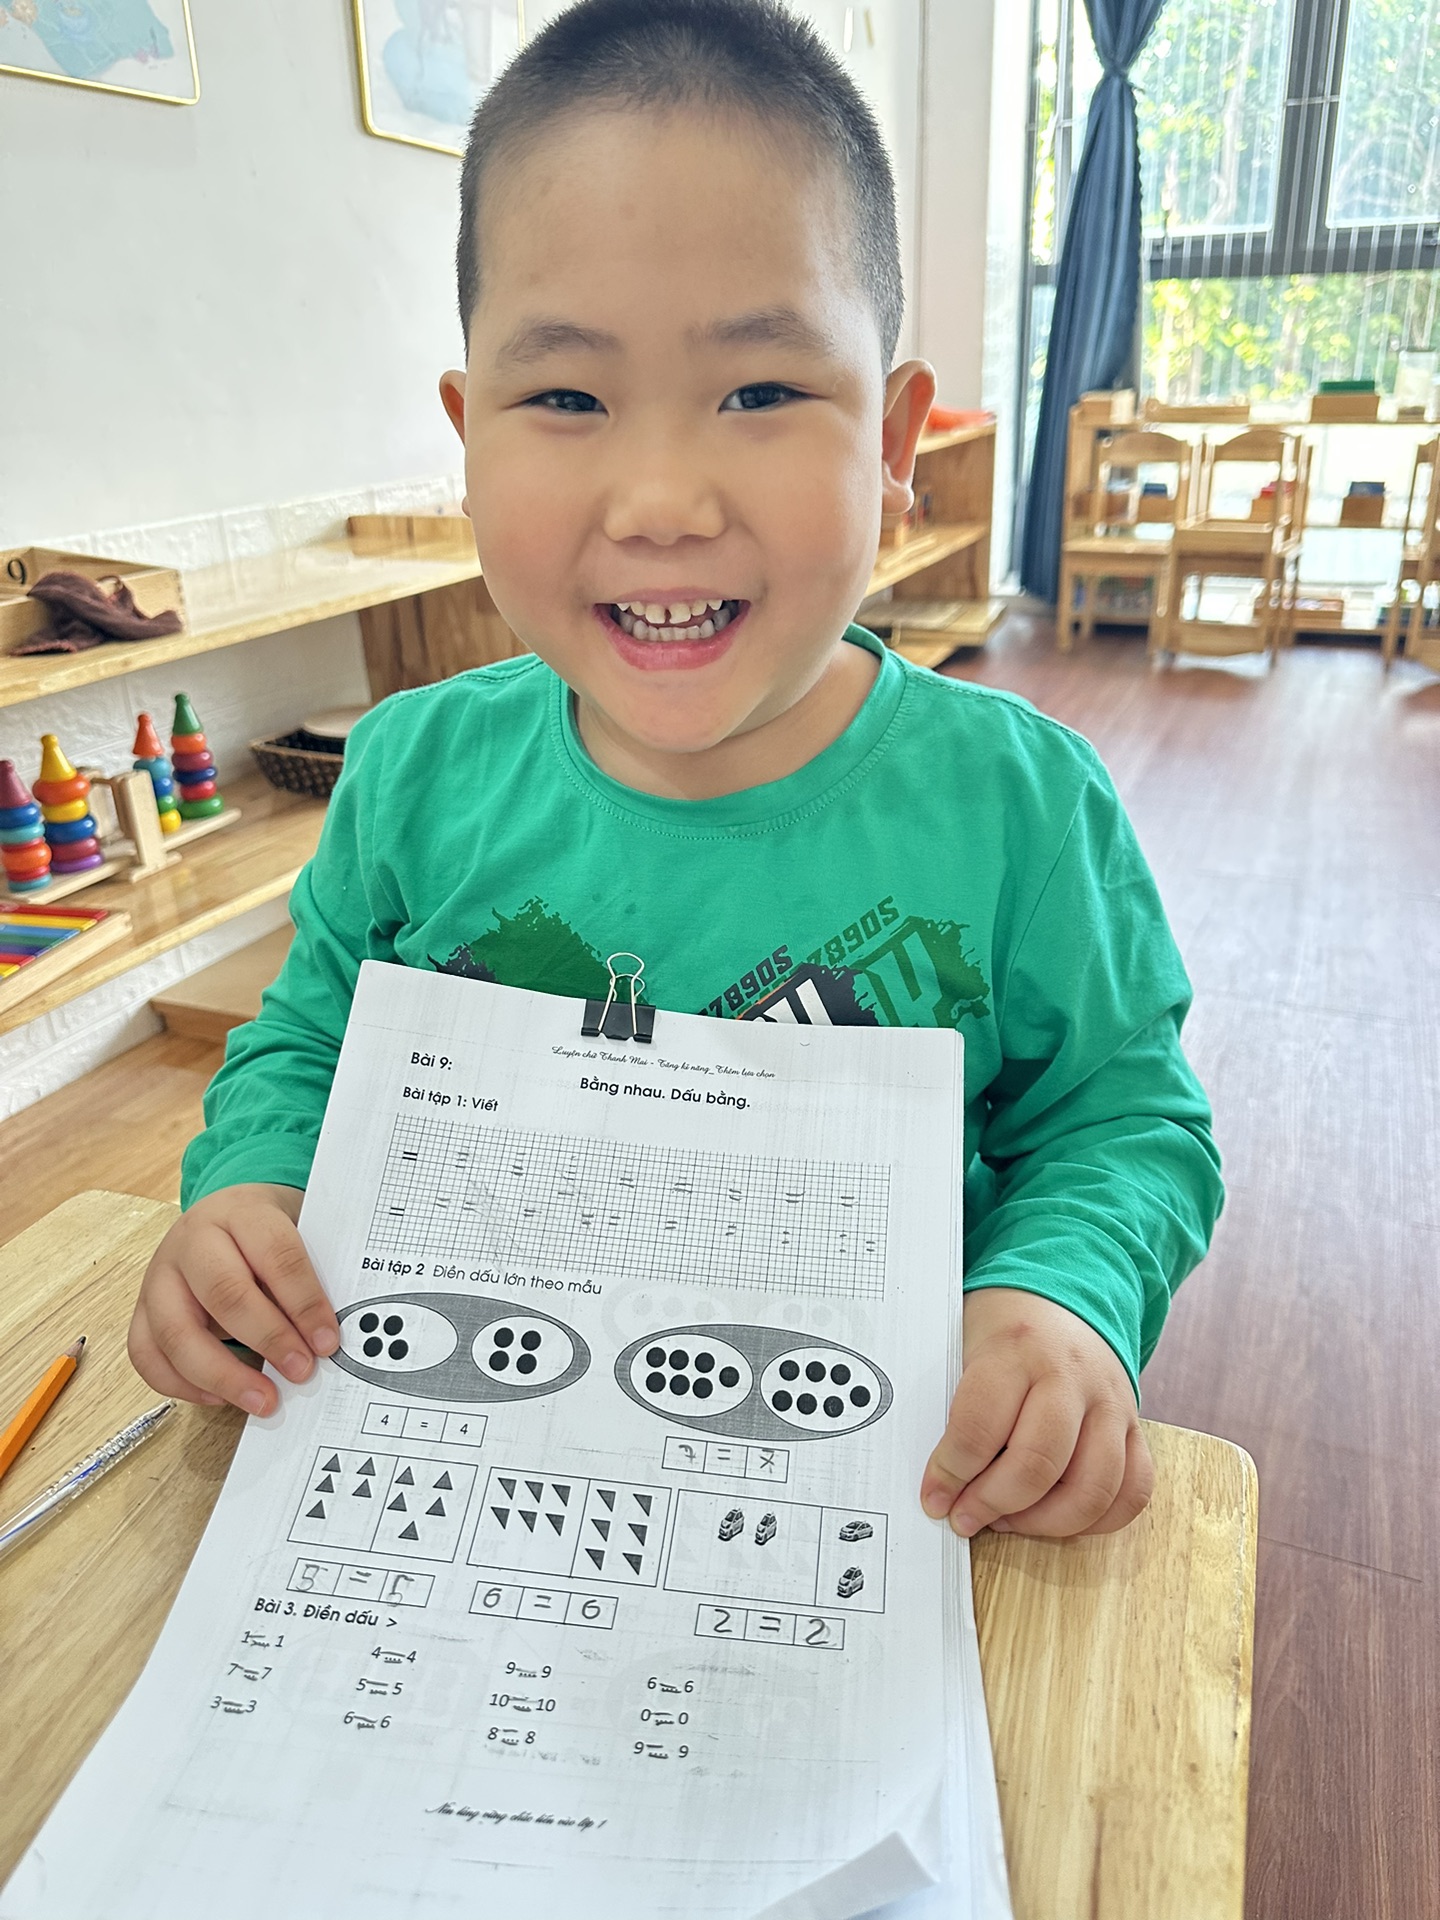 9
7890S
7890S
Luyện chữ Thanh Mai - Tăng kĩ năng_Thêm lựa chọn
Bài 9:
Bằng nhau. Dấu bằng.
Bài tập 1: Viết
= = = = = = = = =
= = = = = = = = = = =
Bài tập 2 Điền dấu lớn theo mẫu
4 = 4
7 = 7
5 = 5
6 = 6
2 = 2
Bài 3. Điền dấu >
1 = 1 4 = 4 9 = 9 6 = 6
7 = 7 5 = 5 10 = 10 0 = 0
3 = 3 6 = 6 8 = 8 9 = 9
Nền tảng vững chắc tiến vào lớp 1